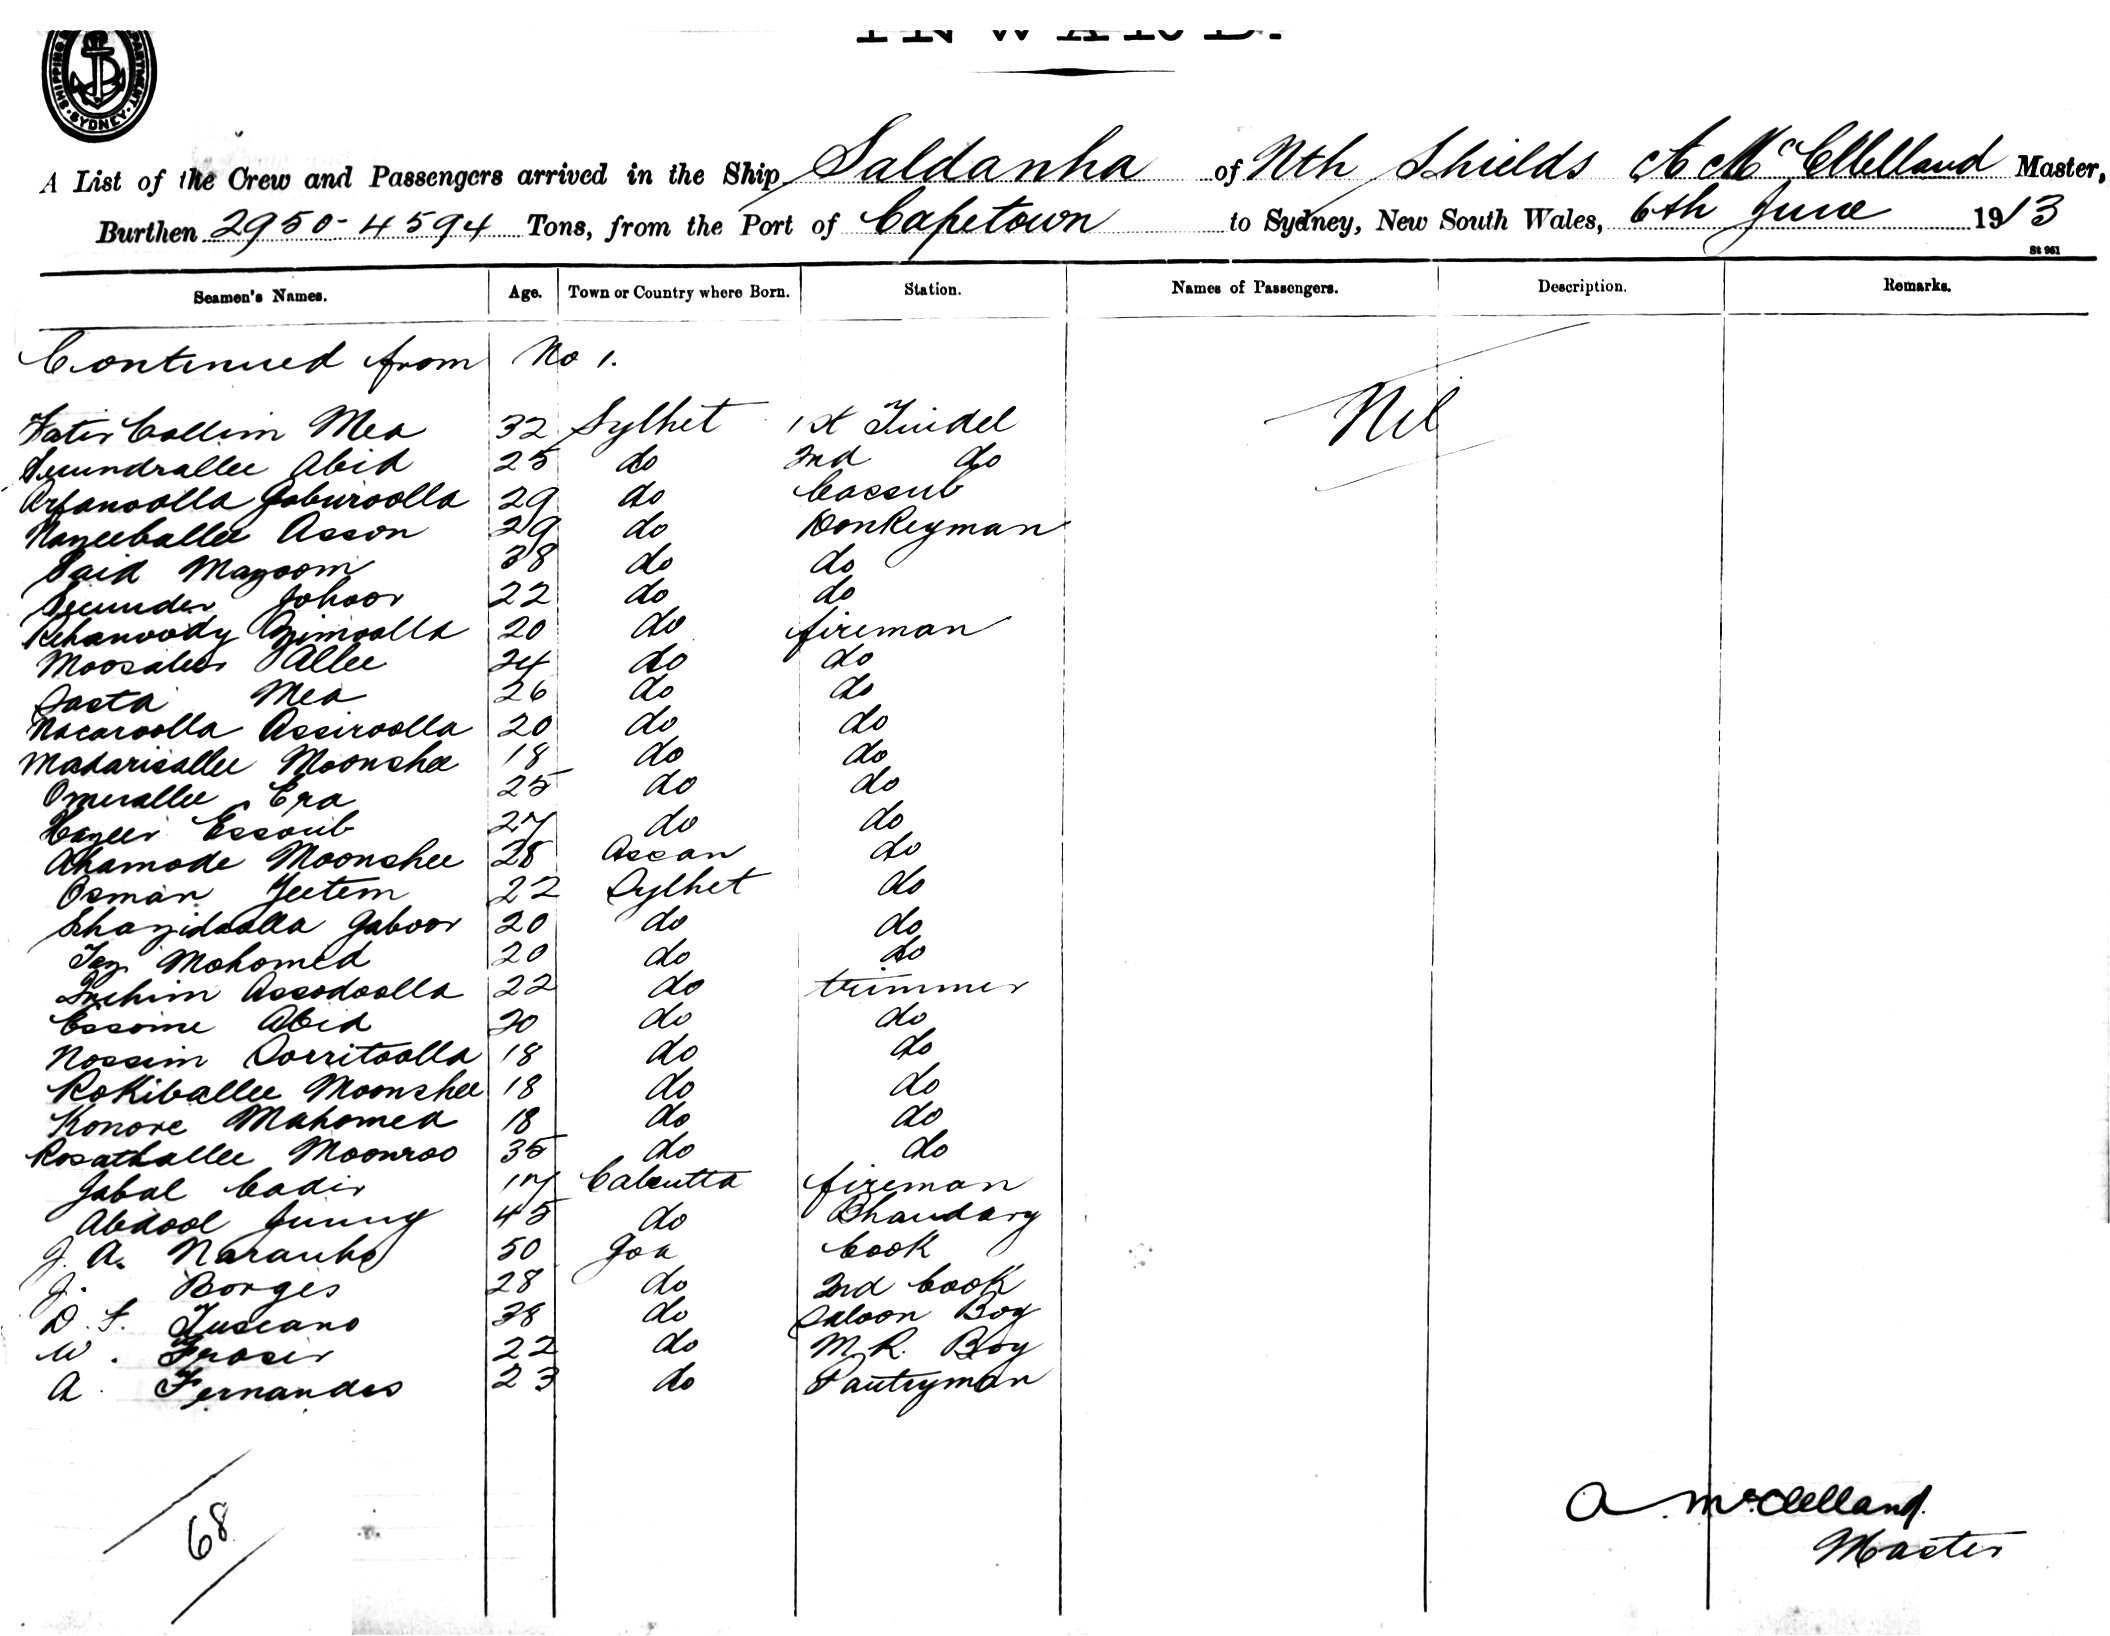 INWARD.
SHIPPING DEPARTMENT. SYDNEY.
A List of the Crew and Passengers arrived in the Ship Saldanha of Nth Shields A McClelland Master,
Burthen 2950 - 4594 Tons, from the Port of Capetown to Sydney, New South Wales, 6th June 1913
St 961
Seamen's Names. Age. Town or Country where Born. Station. Names of Passengers. Description. Remarks.
Continued from No 1.
Nil
Fatir Collim Mea 32 Sylhet 1st Tindel
Secundrallee Abid 25 do 2nd do
Arfanoolla Goburoolla 29 do Cassub
Nazeeballee Asson 29 do Donkeyman
Said Mazoom 38 do do
Secunder Johoor 22 do do
Rehanoody Azimoolla 20 do fireman
Moosaleer Allee 24 do do
Sasta Mea 26 do do
Nacaroolla Assiroolla 20 do do
Madarisallee Moonshee 18 do do
Omerallee Era 25 do do
Hazeer Essoub 27 do do
Ahamode Moonshee 28 Assan do
Osman Jeetem 22 Sylhet do
Shazidoolla Gaboor 20 do do
Taz Mohomed 20 do do
Assodoolla 22 do trimmer
Essome Abid 20 do do
Nossim Dorritoolla 18 do do
Rokiballee Moonshee 18 do do
Konore Mahomed 18 do do
Rosathallee Moonroo 35 do do
Jabal Cadir 17 Calcutta fireman
Abdool Junny 45 do Bhandary
J. A. Naranho 50 Goa Cook
J. Borges 28 do 2nd Cook
D. F. Tuscano 38 do Saloon Boy
W. Fraser 22 do M. R. Boy
A. Fernandes 23 do Pantryman
68
A. McClelland.
Master